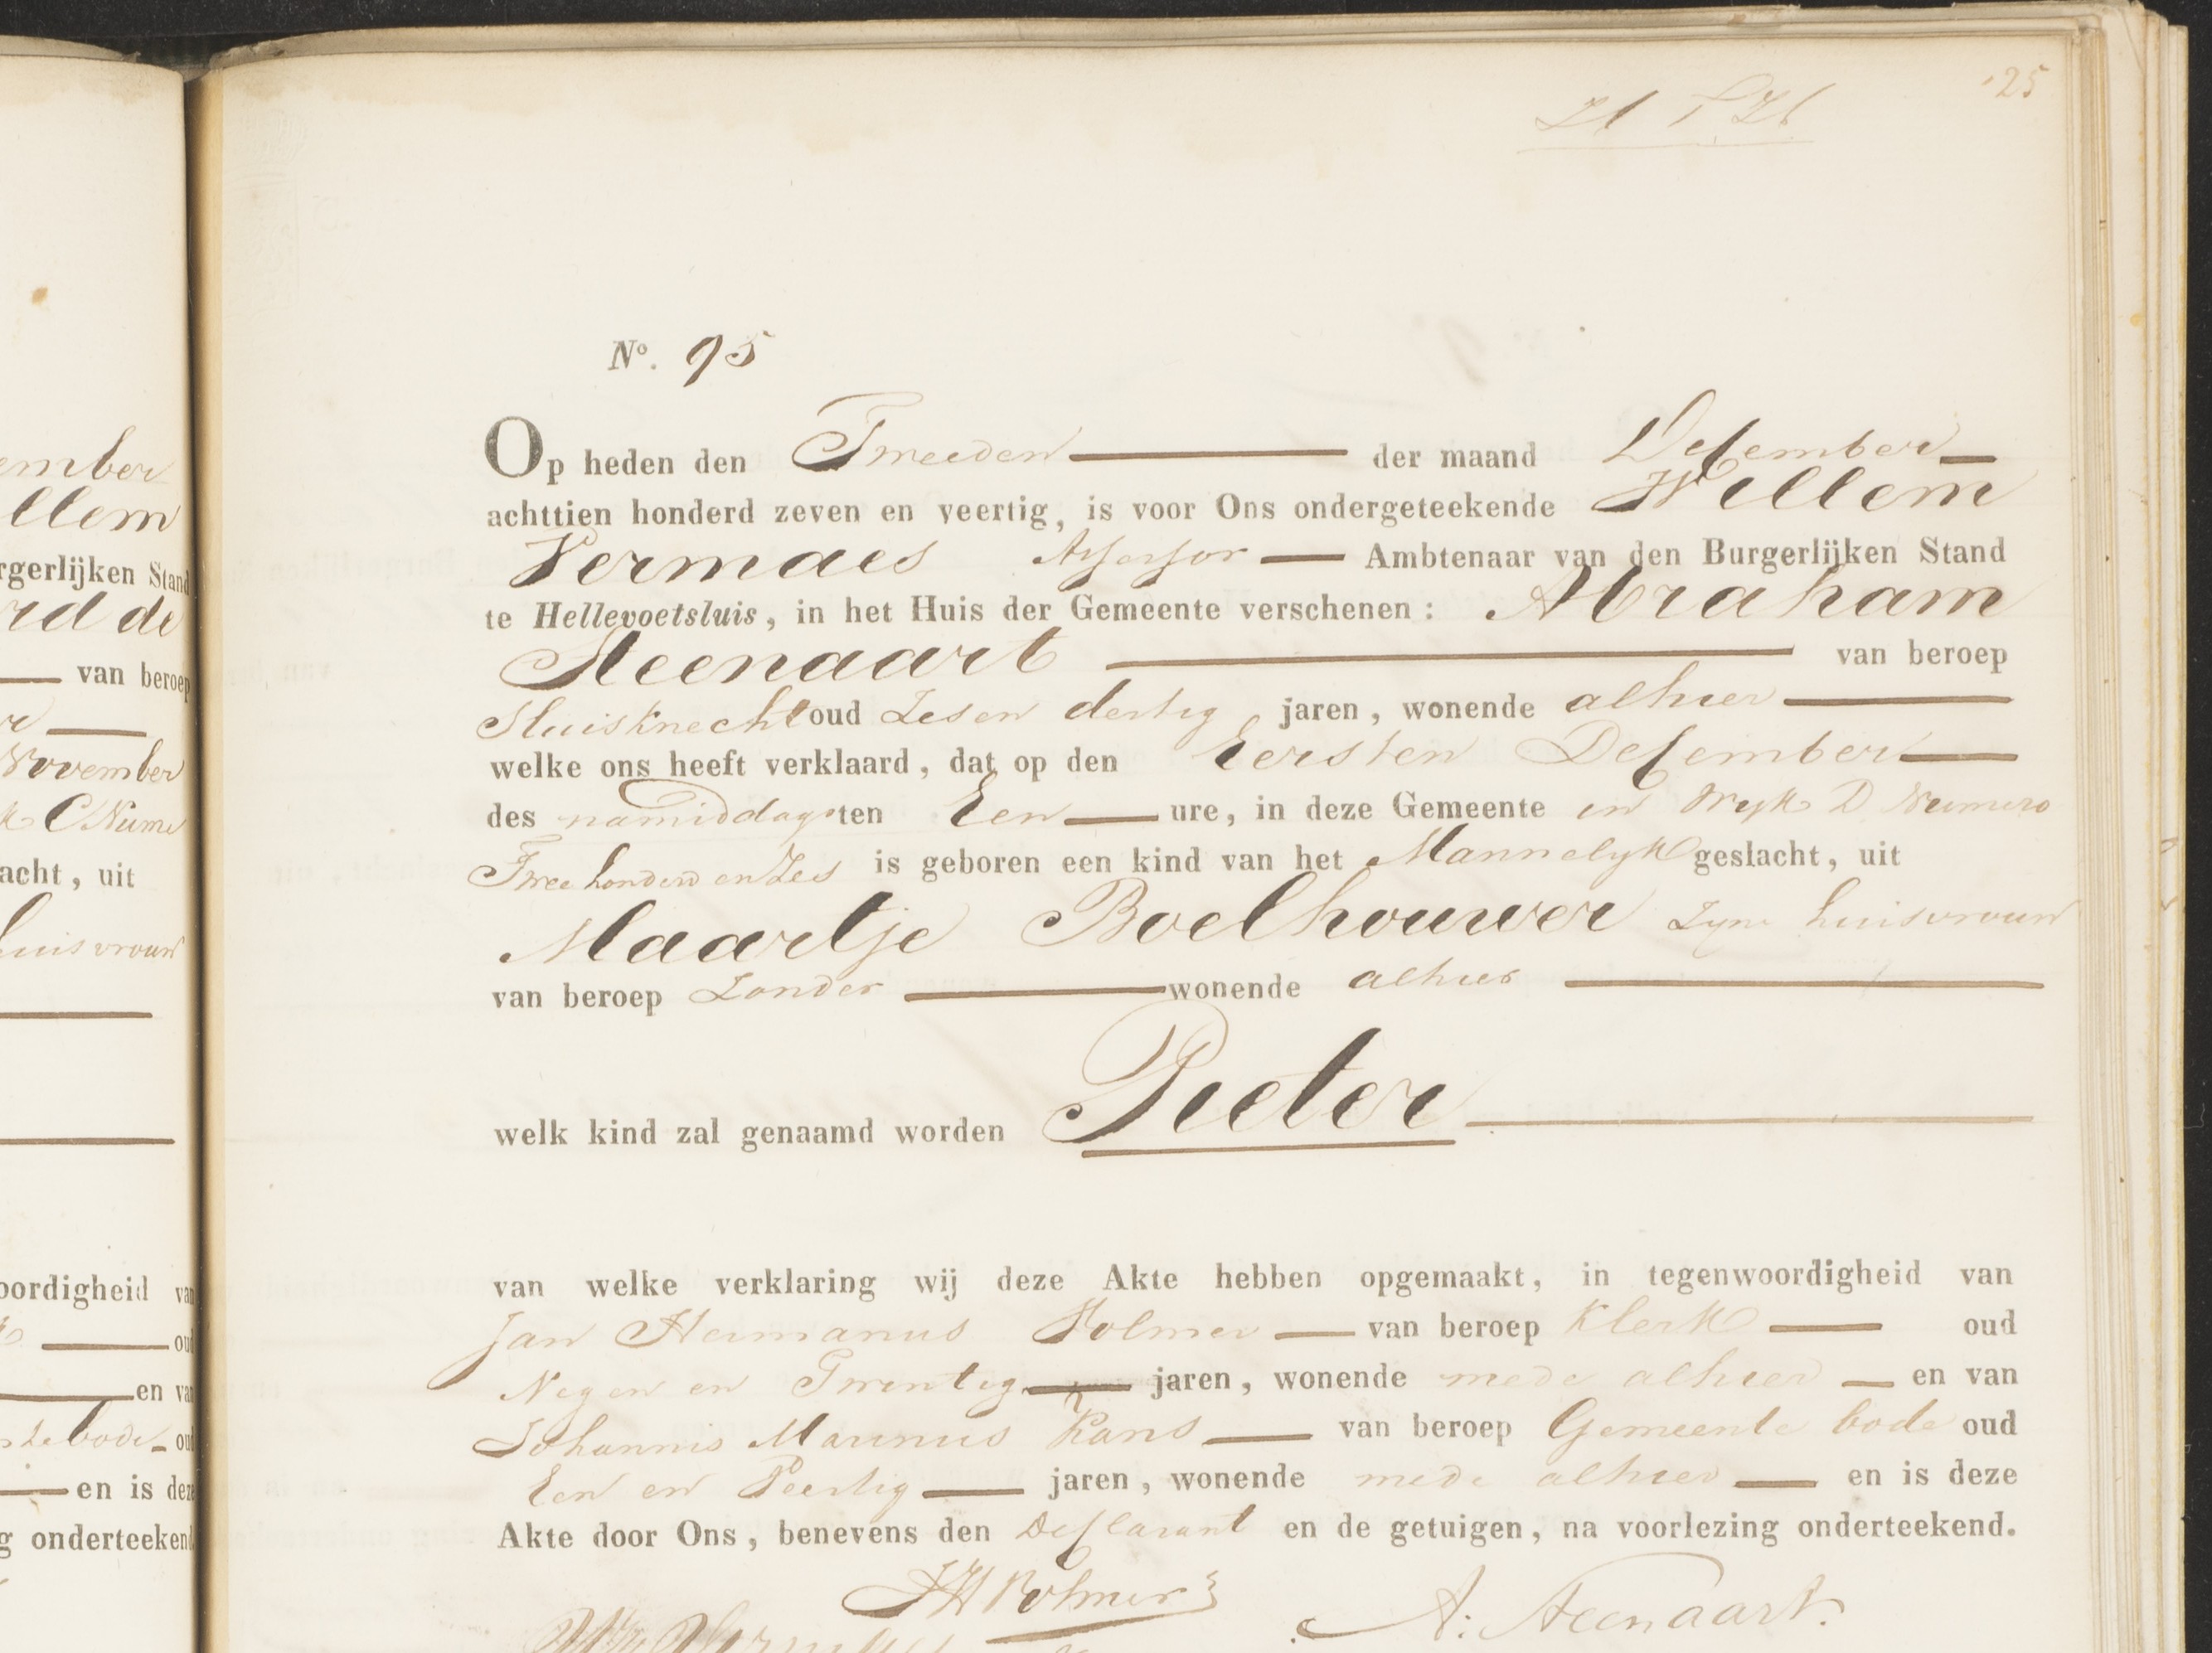 25
No. 95
Op heden den Tweeden der maand December
achttien honderd zeven en veertig, is voor Ons ondergeteekende Willem
Vermaes Assessor Ambtenaar van den Burgerlijken Stand
te Hellevoetsluis, in het Huis der Gemeente verschenen: Abraham
Steenaart van beroep
Sluisknecht oud Zes en dertig jaren, wonende alhier
welke ons heeft verklaard, dat op den Eersten December
des namiddags ten Een ure, in deze Gemeente in Wyk D Numero
Twee honderd en Zes is geboren een kind van het Mannelyk geslacht, uit
Maartje Boelhouwer Zyne huisvrouw
van beroep Zonder wonende alhier
welk kind zal genaamd worden Pieter
van welke verklaring wij deze Akte hebben opgemaakt, in tegenwoordigheid van
Jan Hermanus Holmer van beroep Klerk oud
Negen en Twintig jaren, wonende mede alhier en van
Johannis Marinus Rans van beroep Gemeente bode oud
Een en Veertig jaren, wonende mede alhier en is deze
Akte door Ons, benevens den Declarant en de getuigen, na voorlezing onderteekend.
JH Holmer
A: Steenaart.
ember
llem
rgerlijken Stand
rd de
van beroep
November
k C Nume
acht, uit
huisvrouw
oordigheid van
oud
en van
te bode oud
en is deze
g onderteekend